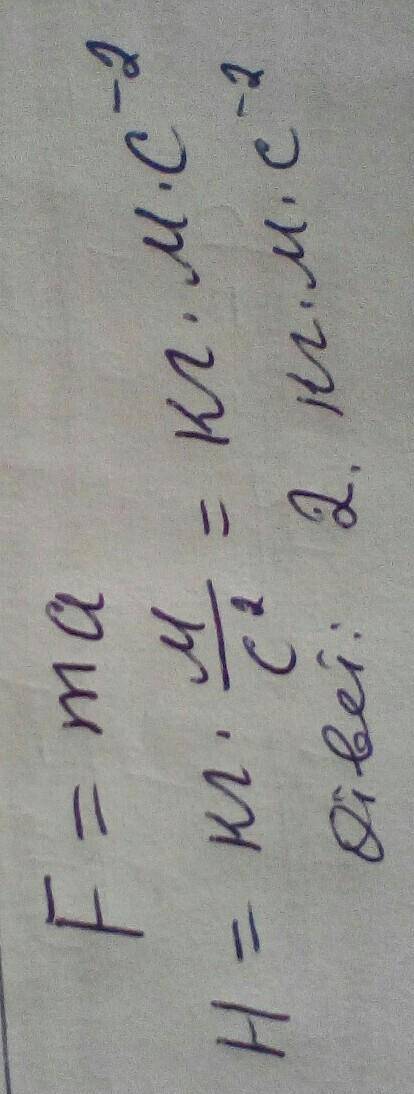 F = ma
Н = кг · м/с² = кг · м · с⁻²
Ответ: 2. кг · м · с⁻²